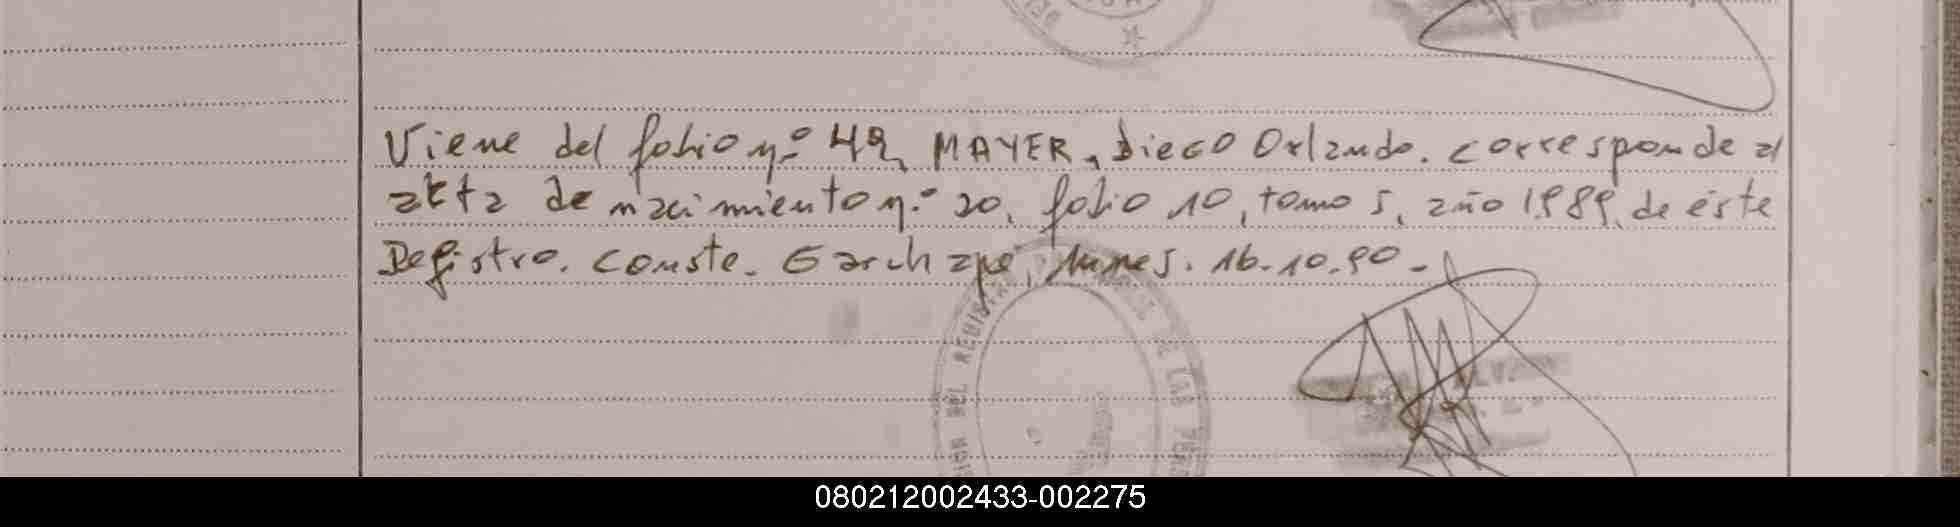 Viene del folio n.º 42, MAYER, Diego Orlando. corresponde al
akta de nacimiento n.º 20, folio 10, tomo 5, año 1989, de éste
Registro. conste. Garuhapé, lunes. 16-10-90.-
REGISTRO DE LAS
080212002433-002275